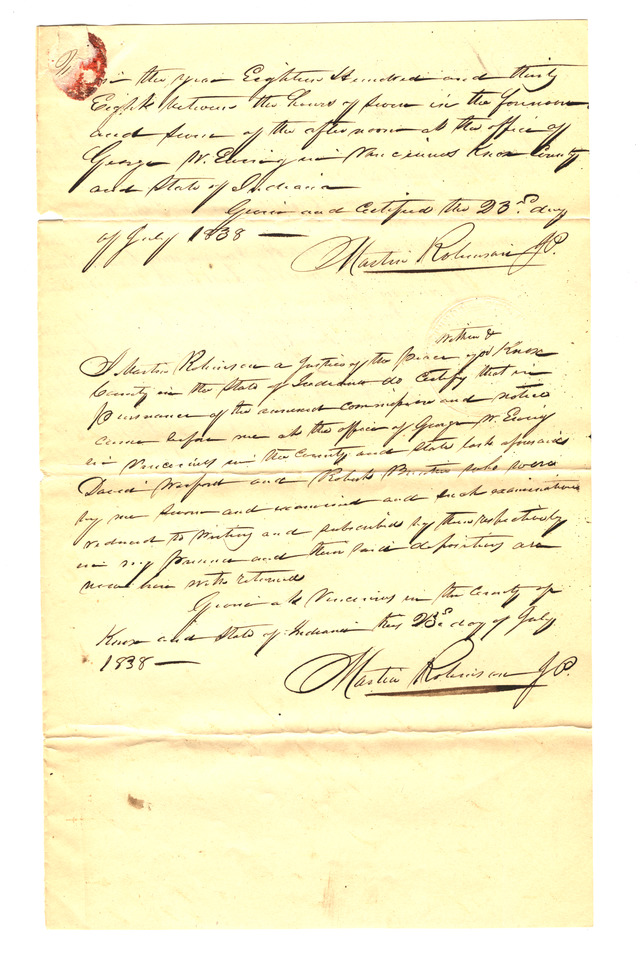 in the year Eighteen Hundred and thirty
Eight between the hours of seven in the forenoon
and seven of the afternoon at the office of
George W. Ewing in Vincennes Knox County
and State of Indiana
Given and Certified the 23rd day
of July 1838
Martin Robinson JP.
within &
I Martin Robinson a Justice of the peace for Knox
County in the State of Indiana do Certify that in
Pursuance of the annexed commission and notice
came before me at the office of George W. Ewing
in Vincennes in the County and State last aforesaid
David and Robert who were
by me sworn and examined and such examination
reduced to writing and subscribed by them respectively
in my presence and their said depositions are
now here with returned
Given at Vincennes in the County of
Knox and State of Indiana this 23rd day of July
1838
Martin Robinson JP.